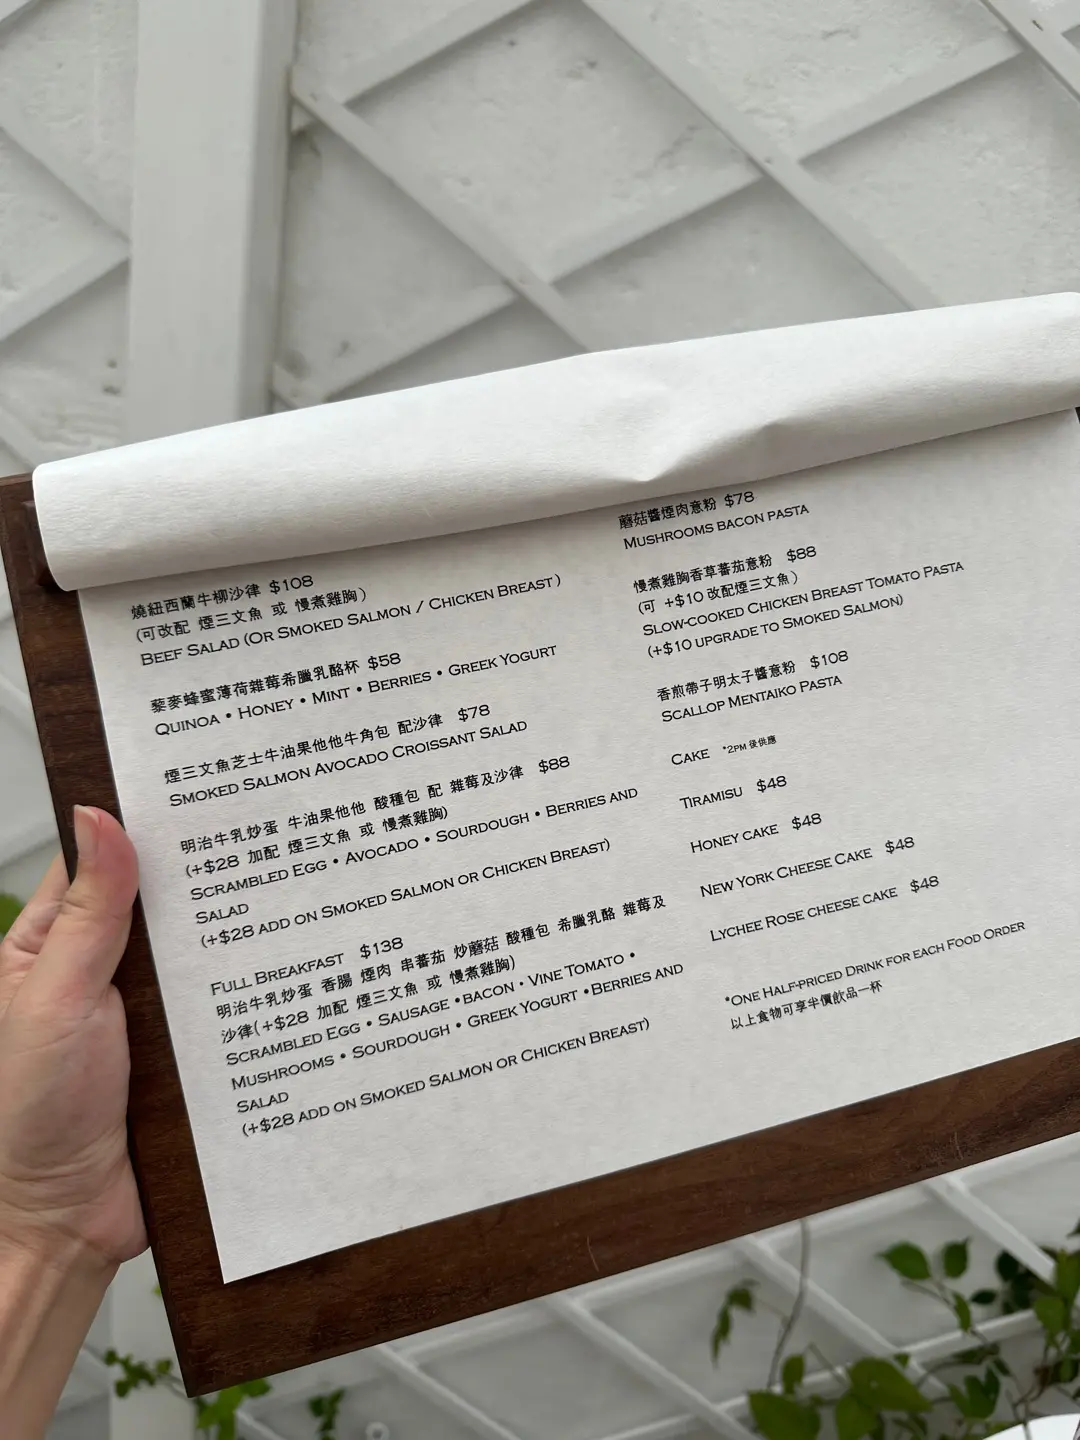 燒紐西蘭牛柳沙律 $108
(可改配 煙三文魚 或 慢煮雞胸)
BEEF SALAD (OR SMOKED SALMON / CHICKEN BREAST)
藜麥蜂蜜薄荷雜莓希臘乳酪杯 $58
QUINOA • HONEY • MINT • BERRIES • GREEK YOGURT
煙三文魚芝士牛油果他他牛角包 配沙律 $78
SMOKED SALMON AVOCADO CROISSANT SALAD
明治牛乳炒蛋 牛油果他他 酸種包 配 雜莓及沙律 $88
(+$28 加配 煙三文魚 或 慢煮雞胸)
SCRAMBLED EGG • AVOCADO • SOURDOUGH • BERRIES AND
SALAD
(+$28 ADD ON SMOKED SALMON OR CHICKEN BREAST)
FULL BREAKFAST $138
明治牛乳炒蛋 香腸 煙肉 串蕃茄 炒蘑菇 酸種包 希臘乳酪 雜莓及
沙律(+$28 加配 煙三文魚 或 慢煮雞胸)
SCRAMBLED EGG • SAUSAGE •BACON • VINE TOMATO •
MUSHROOMS • SOURDOUGH • GREEK YOGURT •BERRIES AND
SALAD
(+$28 ADD ON SMOKED SALMON OR CHICKEN BREAST)
蘑菇醬煙肉意粉 $78
MUSHROOMS BACON PASTA
慢煮雞胸香草蕃茄意粉 $88
(可 +$10 改配煙三文魚)
SLOW-COOKED CHICKEN BREAST TOMATO PASTA
(+$10 UPGRADE TO SMOKED SALMON)
香煎帶子明太子醬意粉 $108
SCALLOP MENTAIKO PASTA
CAKE *2PM 後供應
TIRAMISU $48
HONEY CAKE $48
NEW YORK CHEESE CAKE $48
LYCHEE ROSE CHEESE CAKE $48
*ONE HALF-PRICED DRINK FOR EACH FOOD ORDER
以上食物可享半價飲品一杯